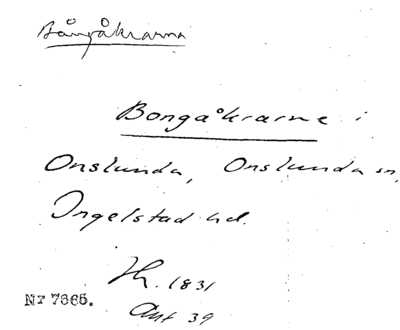 Bångåkrarna
Bongåkrarne i
Onslunda, Onslunda sn,
Ingelstad hd.
1831
Nr 7665.
Akt 39